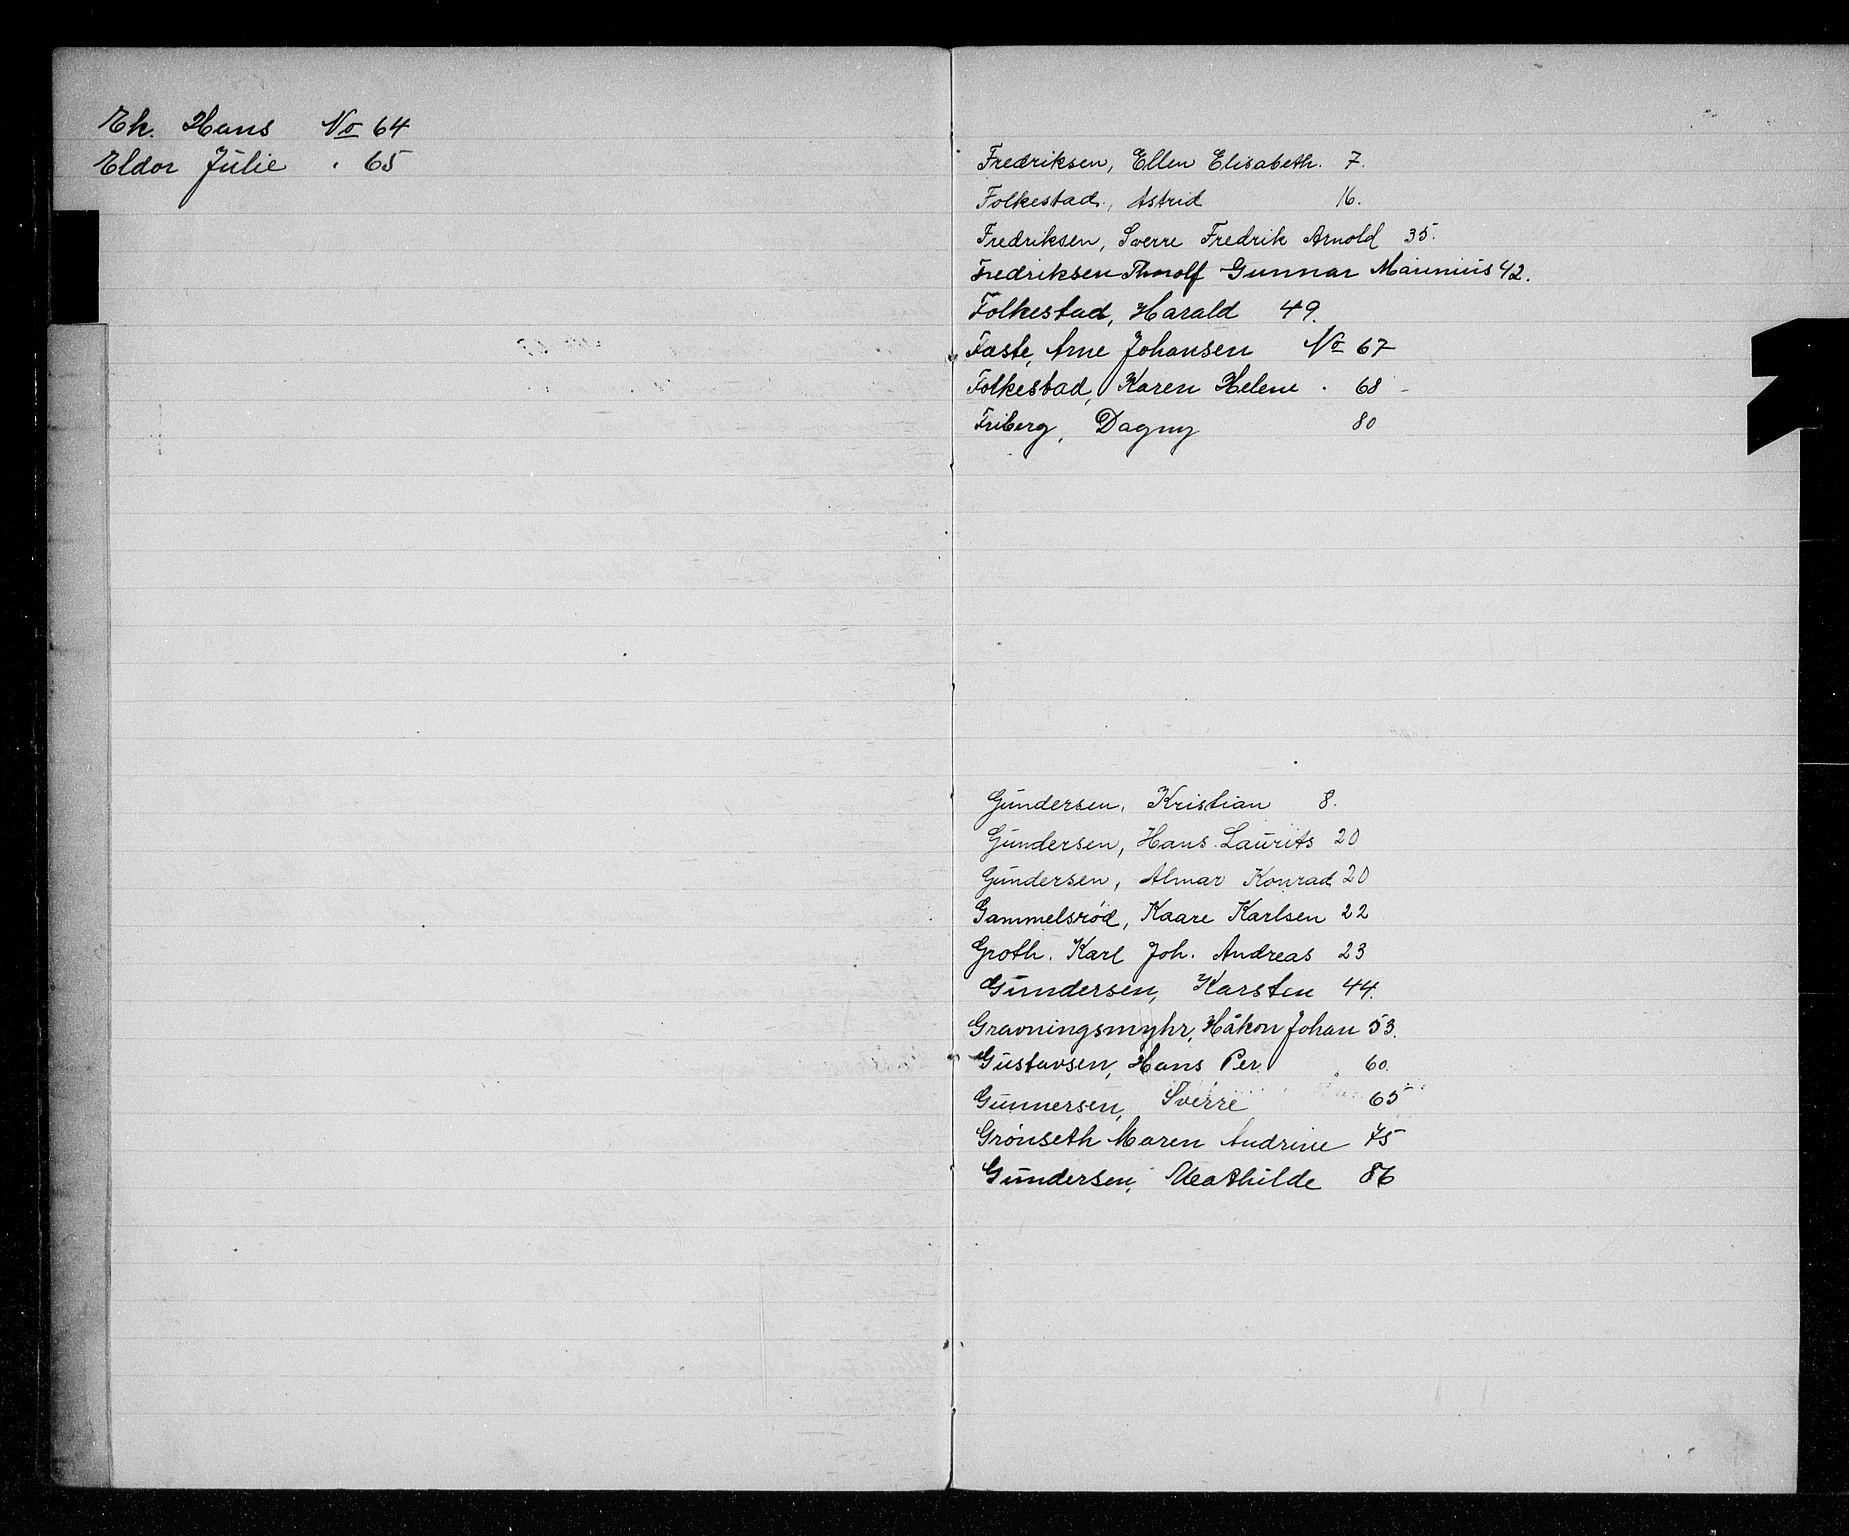 Ek. Hans No 64
Eldor Julie . 65
Fredriksen, Ellen Elisabeth. 7.
Folkestad, Astrid 16.
Fredriksen, Sverre Fredrik Arnold 35.
Fredriksen Thorolf Gunnar Marinius 42.
Folkestad, Harald 49.
Faste, Arne Johansen No 67
Folkestad, Karen Helene . 68
Friberg, Dagny 80
Gundersen, Kristian 8.
Gundersen, Hans Laurits 20
Gundersen, Almar Konrad 20
Gammelsröd, Kaare Karlsen 22
Groth. Karl Joh. Andreas 23
Gundersen, Karsten 44.
Gravningsmyhr, Håkon Johan 53.
Gustavsen, Hans Per 60.
Gunnersen, Sverre 65
Grönseth Maren Andrine 75
Gundersen, Mathilde 86